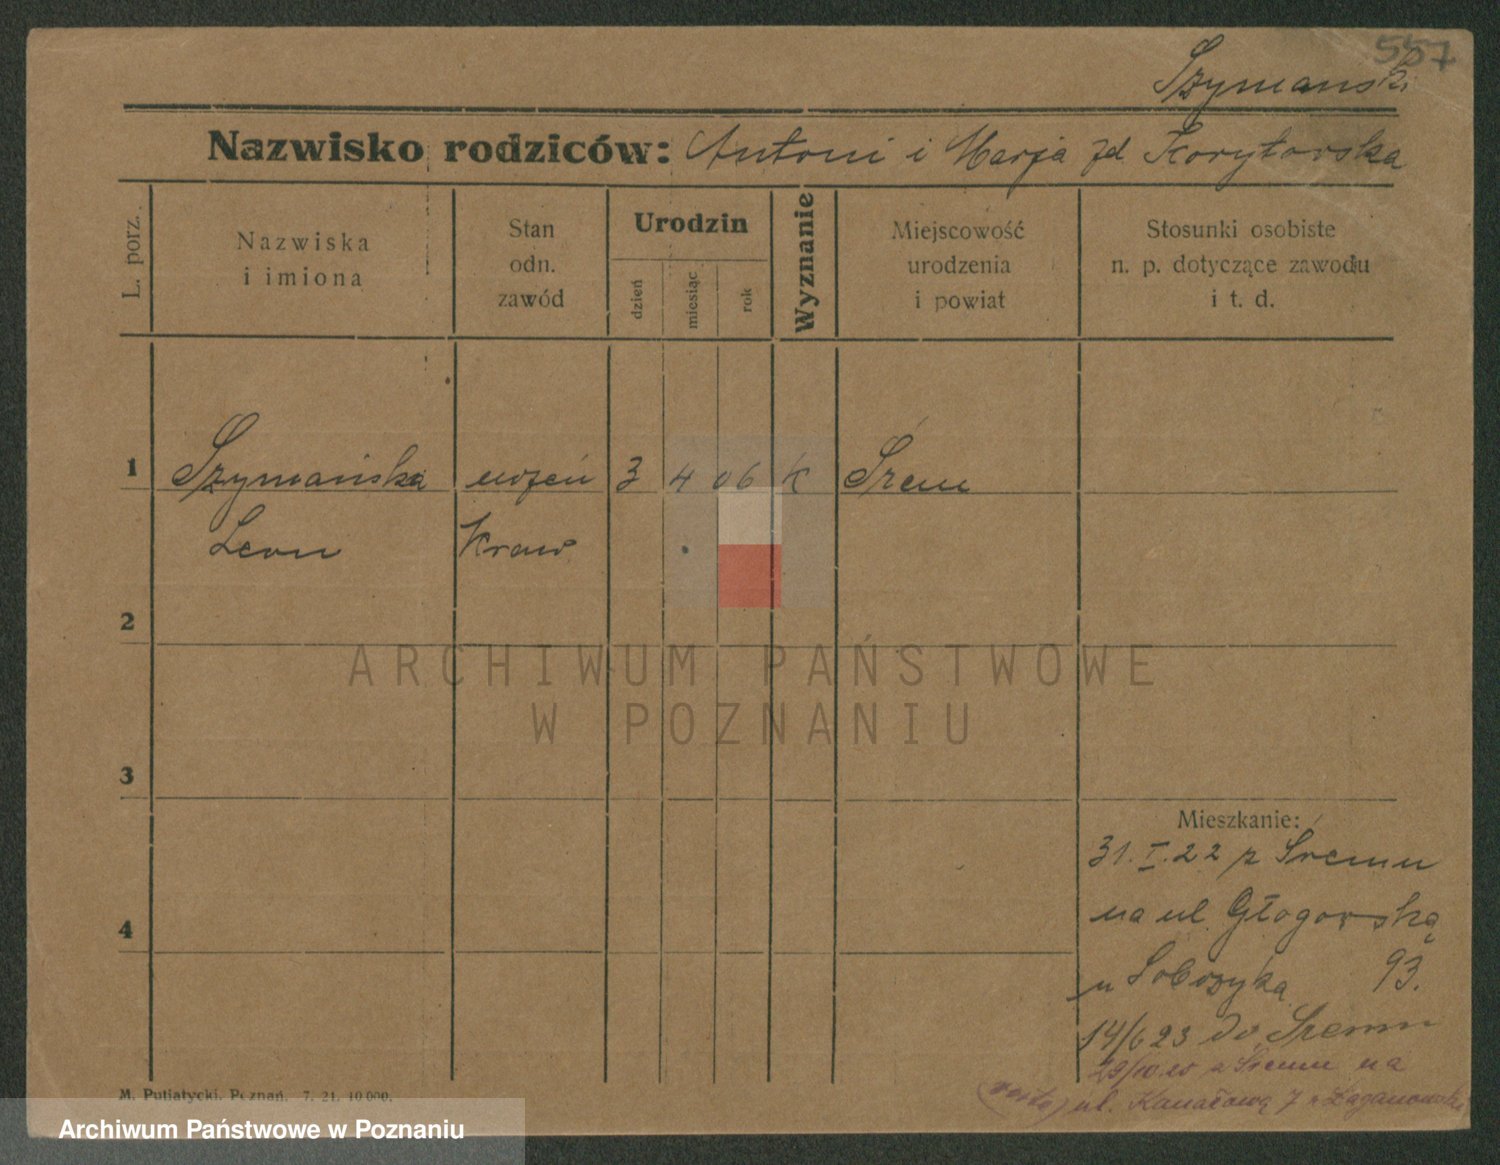 557
Szymański
Nazwisko rodziców: Antoni i Marja zd Korytowska
L. porz.
Nazwiska
i imiona
Stan
odn.
zawód
Urodzin
dzień
miesiąc
rok
Wyznanie
Miejscowość
urodzenia
i powiat
Stosunki osobiste
n. p. dotyczące zawodu
i t. d.
1
Szymańska uczeń 3 4 06 k Śrem
Leon Kraw
2
ARCHIWUM PAŃSTWOWE
W POZNANIU
3
4
Mieszkanie:
31.I.22 z Śremu
na ul. Głogowską
u Sobczyka 93.
14/6 23 do Śremu
29/10 25 z Śremu na
ul. Kanałową 7
M. Putiatycki, Poznań. 7. 21. 10 000.
Archiwum Państwowe w Poznaniu